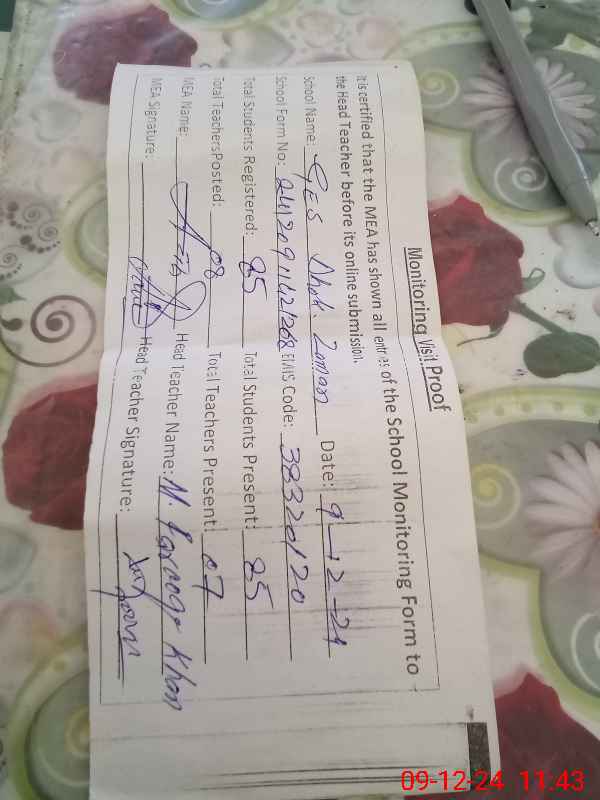 Monitoring Visit Proof
It is certified that the MEA has shown all entries of the School Monitoring Form to
the Head Teacher before its online submission.
School Name: GES Dhok Zaman Date: 9-12-24
School Form No: EMIS Code: 38320120
Total Students Registered: 85 Total Students Present: 85
Total TeachersPosted: 08 Total Teachers Present: 07
MEA Name: Head Teacher Name: M. Farooq Khan
MEA Signature: Head Teacher Signature:
09-12-24 11:43